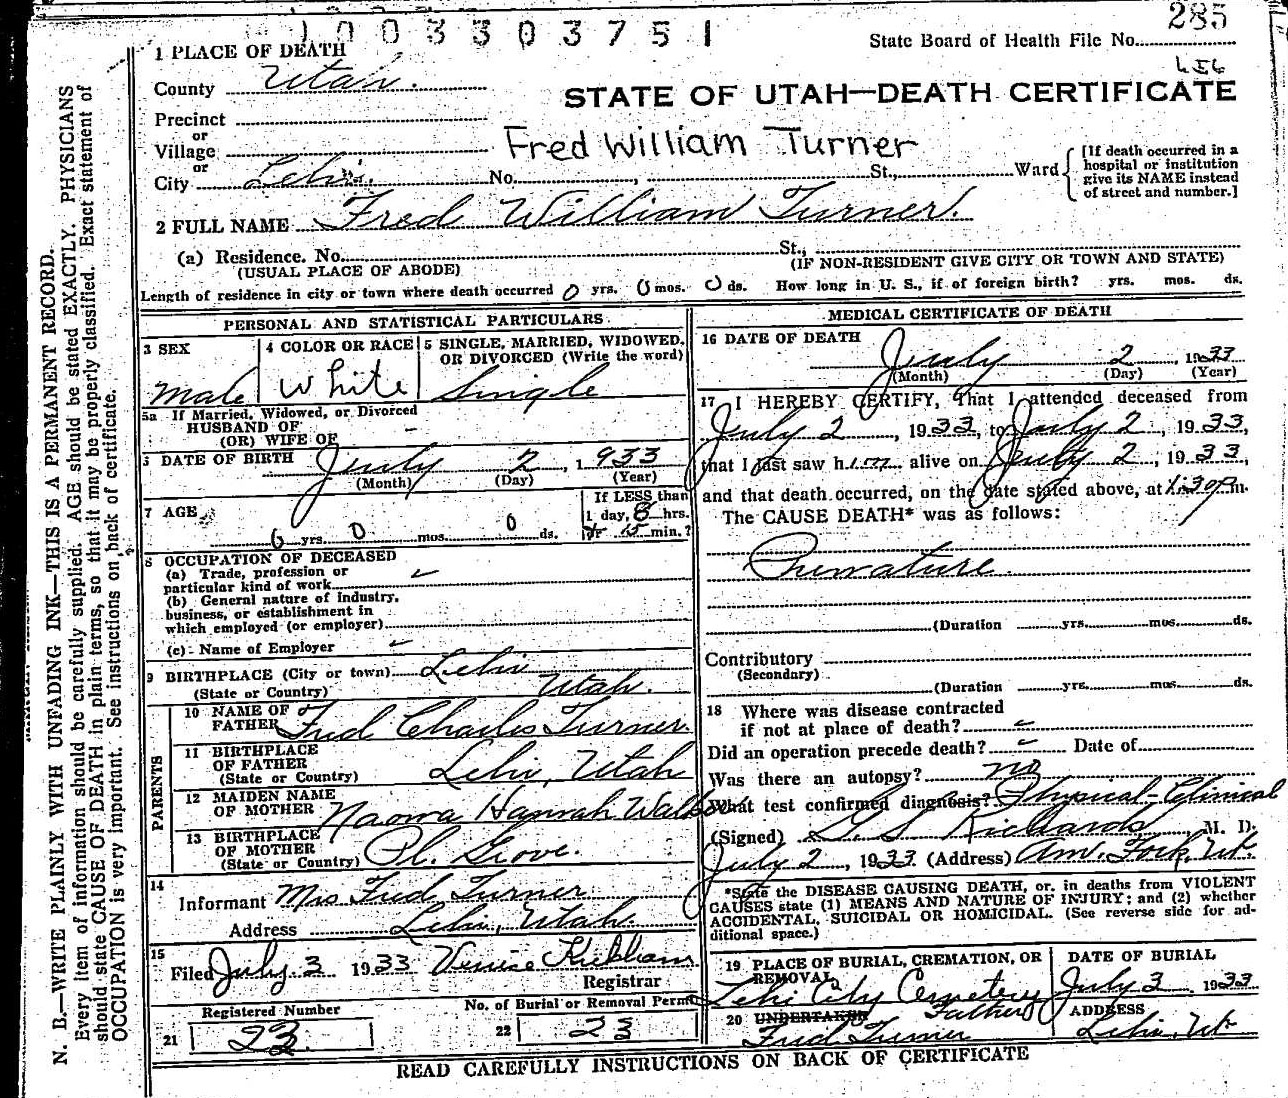 1003303751
285
State Board of Health File No.
1 PLACE OF DEATH
County Utah.
STATE OF UTAH—DEATH CERTIFICATE
Precinct
or
Village
Fred William Turner
or
City Lehi. No. , St., Ward
[If death occurred in a
hospital or institution
give its NAME instead
of street and number.]
2 FULL NAME Fred William Turner.
(a) Residence. No. St.,
(USUAL PLACE OF ABODE) (IF NON-RESIDENT GIVE CITY OR TOWN AND STATE)
Length of residence in city or town where death occurred 0 yrs. 0 mos. 0 ds. How long in U. S., if of foreign birth? yrs. mos. ds.
PERSONAL AND STATISTICAL PARTICULARS
3 SEX
Male
4 COLOR OR RACE
White
5 SINGLE, MARRIED, WIDOWED,
OR DIVORCED (Write the word)
Single
5a If Married, Widowed, or Divorced
HUSBAND OF -
(OR) WIFE OF
DATE OF BIRTH July 2, 1933
(Month) (Day) (Year)
7 AGE
0 yrs. 0 mos. 0 ds.
If LESS than
1 day, 8 hrs.
or 15 min.?
8 OCCUPATION OF DECEASED
(a) Trade, profession or
particular kind of work
(b) General nature of Industry,
business, or establishment in
which employed (or employer)
(c) Name of Employer
9 BIRTHPLACE (City or town) Lehi
(State or Country) Utah.
PARENTS
10 NAME OF
FATHER Fred Charles Turner
11 BIRTHPLACE
OF FATHER
(State or Country) Lehi, Utah
12 MAIDEN NAME
OF MOTHER Naoma Hannah Walker
13 BIRTHPLACE
OF MOTHER
(State or Country) Pl. Grove.
14
Informant Mrs Fred Turner
Address Lehi, Utah.
15
Filed July 3 1933
Registrar
Registered Number
21 23
No. of Burial or Removal Permit
22 23
MEDICAL CERTIFICATE OF DEATH
16 DATE OF DEATH
July 2, 1933
(Month) (Day) (Year)
17 I HEREBY CERTIFY, That I attended deceased from
July 2, 1933, to July 2, 1933,
that I last saw him alive on July 2, 1933,
and that death occurred, on the date stated above, at 1:30 P.m.
The CAUSE DEATH* was as follows:
Premature.
(Duration yrs. mos. ds.
Contributory
(Secondary)
(Duration yrs. mos. ds.
18 Where was disease contracted
if not at place of death?
Did an operation precede death? Date of
Was there an autopsy? no
What test confirmed diagnosis? Physical-Clinical
(Signed) G. S. Richards, M. D.
July 2, 1933 (Address) Am. Fork, Ut.
*State the DISEASE CAUSING DEATH, or, in deaths from VIOLENT
CAUSES state (1) MEANS AND NATURE OF INJURY; and (2) whether
ACCIDENTAL, SUICIDAL OR HOMICIDAL. (See reverse side for ad-
ditional space.)
19 PLACE OF BURIAL, CREMATION, OR
REMOVAL
Lehi City Cemetery
DATE OF BURIAL
July 3 1933
20 UNDERTAKER Father
Fred Turner
ADDRESS
Lehi, Ut
READ CAREFULLY INSTRUCTIONS ON BACK OF CERTIFICATE
N. B.—WRITE PLAINLY WITH UNFADING INK—THIS IS A PERMANENT RECORD.
Every item of information should be carefully supplied. AGE should be stated EXACTLY. PHYSICIANS
should state CAUSE OF DEATH in plain terms, so that it may be properly classified. Exact statement of
OCCUPATION is very important. See instructions on back of certificate.